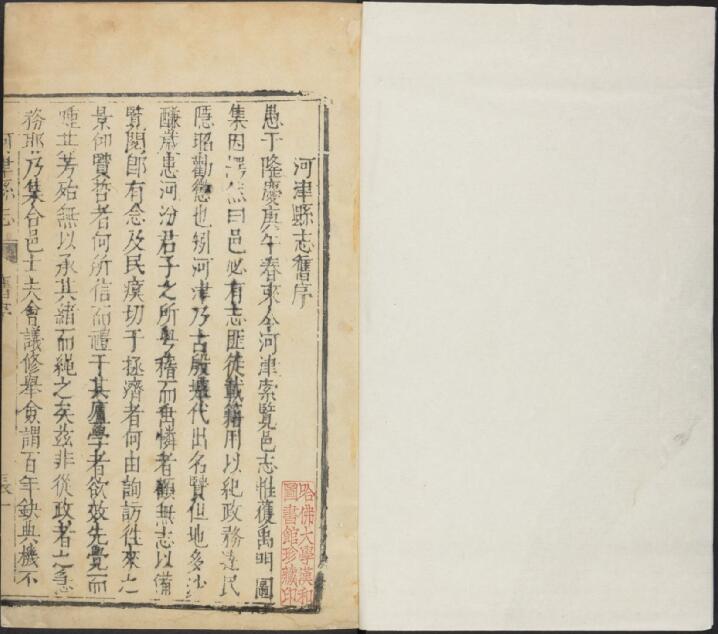 河津縣志舊序
愚于隆慶庚午春來令河津索覽邑志惟獲禹明圖
集因愕然曰邑必有志匪徒載籍用以紀政務達民
隱昭勸懲也矧河津乃古殷墟代出名賢但地多沙
鹻歲患河汾君子之所與稽而軫憐者顧無志以備
覽閱即有念及民瘼切于拯濟者何由詢訪往來之
景仰賢哲者何所信而禮于其廬學者欲效先覺而
踵其芳殆無以承其緒而繩之矣茲非從政者之急
務耶乃集合邑士夫會議修舉僉謂百年缺典機不
河津縣志
舊序
哈佛大學漢和
圖書館珍藏印